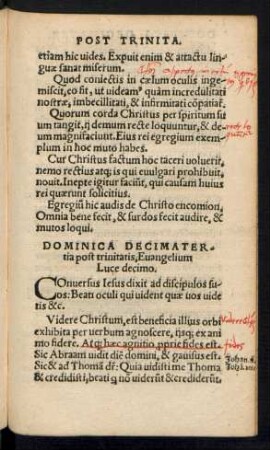 POST TRINITA.
etiam hic uides. Expuit enim & attractu lin
guæ sanat miserum.
Quod coniectis in cælum oculis inge
miscit, eo fit, ut uideamꝰ quàm incredulitati
nostræ, imbecillitati, & infirmitati cõpatiať.
Quorum corda Christus per spiritum su
um tangit, ij demum recte loquuntur, & de
um magnificiunt. Eius rei egregium exem
plum in hoc muto habes.
Cur Christus factum hoc taceri uoluerit,
nemo rectius atqȝ is qui euulgari prohibuit,
nouit. Inepte igitur faciũt, qui causam huius
rei quærunt solicitius.
Egregiũ hic audis de Christo encomion,
Omnia bene fecit, & surdos fecit audire, &
mutos loqui.
DOMINICA DECIMATER-
tia post trinitatis, Euangelium
Luce decimo.
COnuersus Iesus dixit ad discipulos su-
os: Beati oculi qui uident quæ uos uide
tis &c.
Videre Christum, est beneficia illius orbi
exhibita per uerbum agnoscere, ijsqȝ ex ani
mo fidere. Atqȝ hæc agnitio ꝓprie fides est.
fides
Sic Abraam uidit diẽ domini, & gauisus est.
Iohan. 8.
Sic & ad Thomã dr̃: Quia uidisti me Thoma
& credidisti, beati q̃ nõ uiderũt & crediderũt.